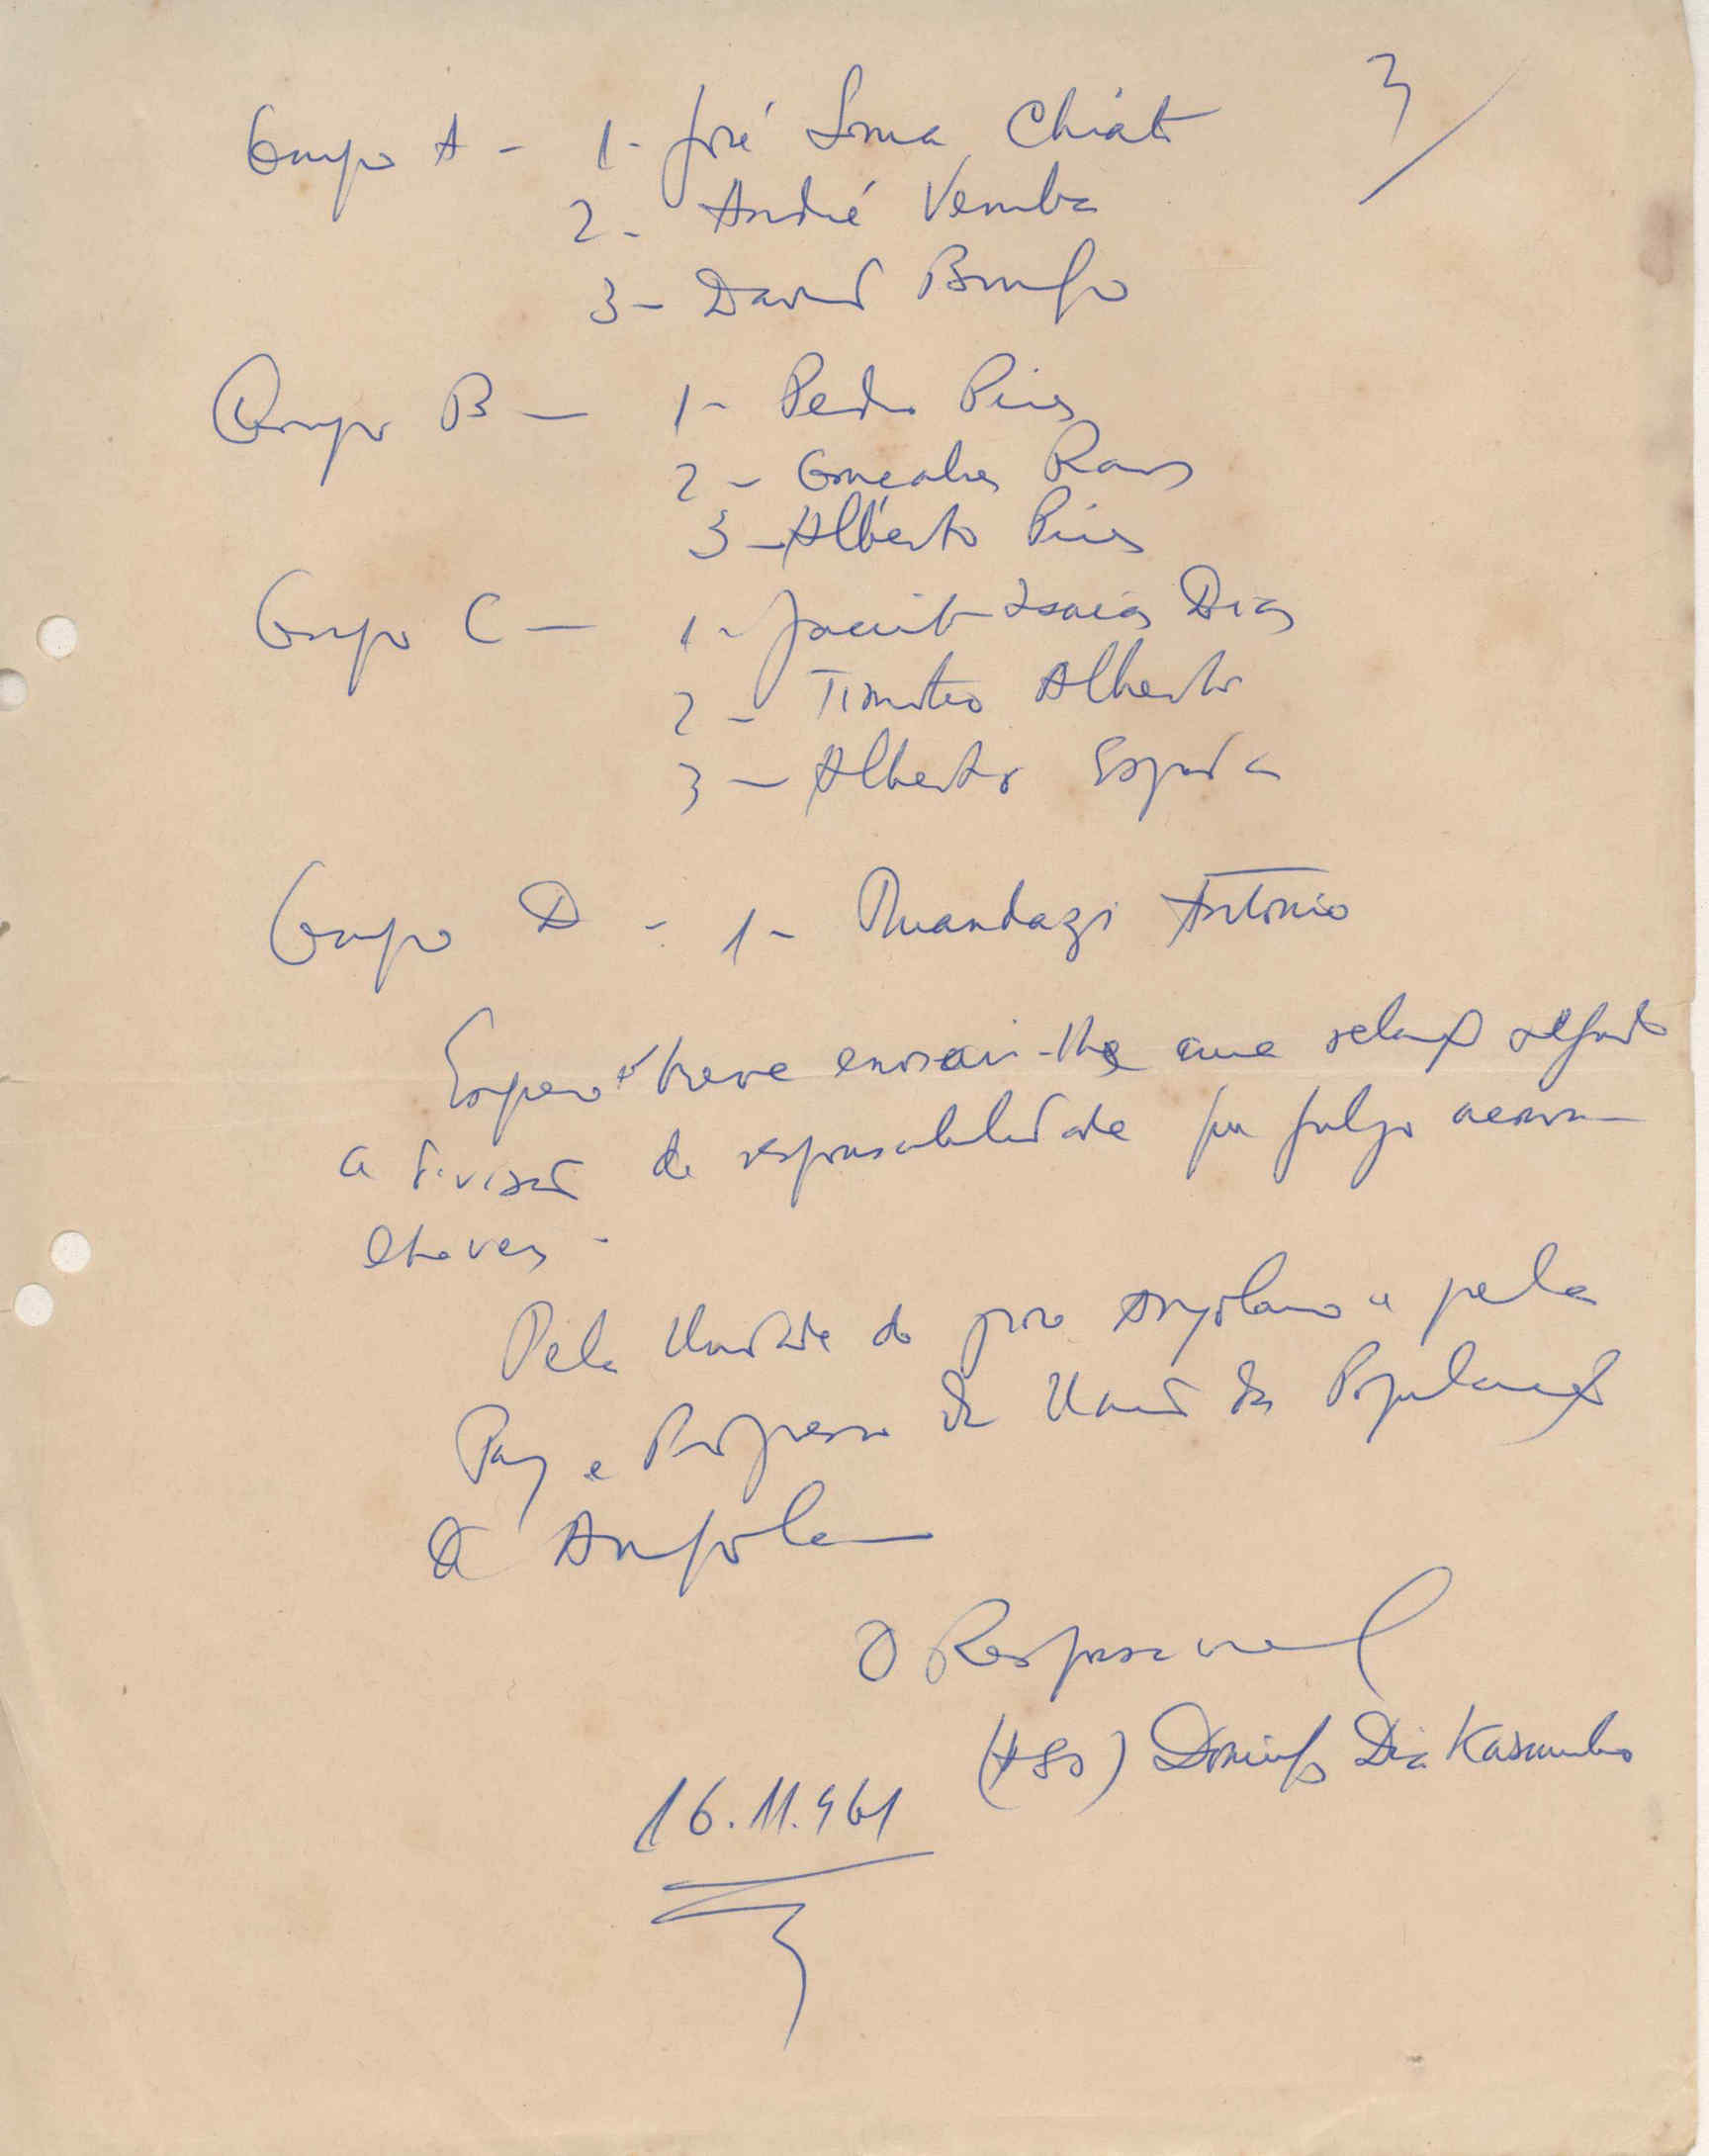 3/
Grupo A - 1- José Loma Chiato
2- André Vemba
3- David Bunfo
Grupo B - 1- Pedro Pires
2- Gonçalves
3- Alberto Pires
Grupo C - 1- Jacinto Isaias Dias
2- Timoteo Alberto
3- Alberto
Grupo D - 1- António
Espero breve enviar-lhe uma relação
a divisão de responsabilidade
Pela Unidade do povo Angolano e pela
Paz e Progresso da União das População
de Angola
O Responsavel
(ASS) Domingos Dia Kasumbo
16.11.961